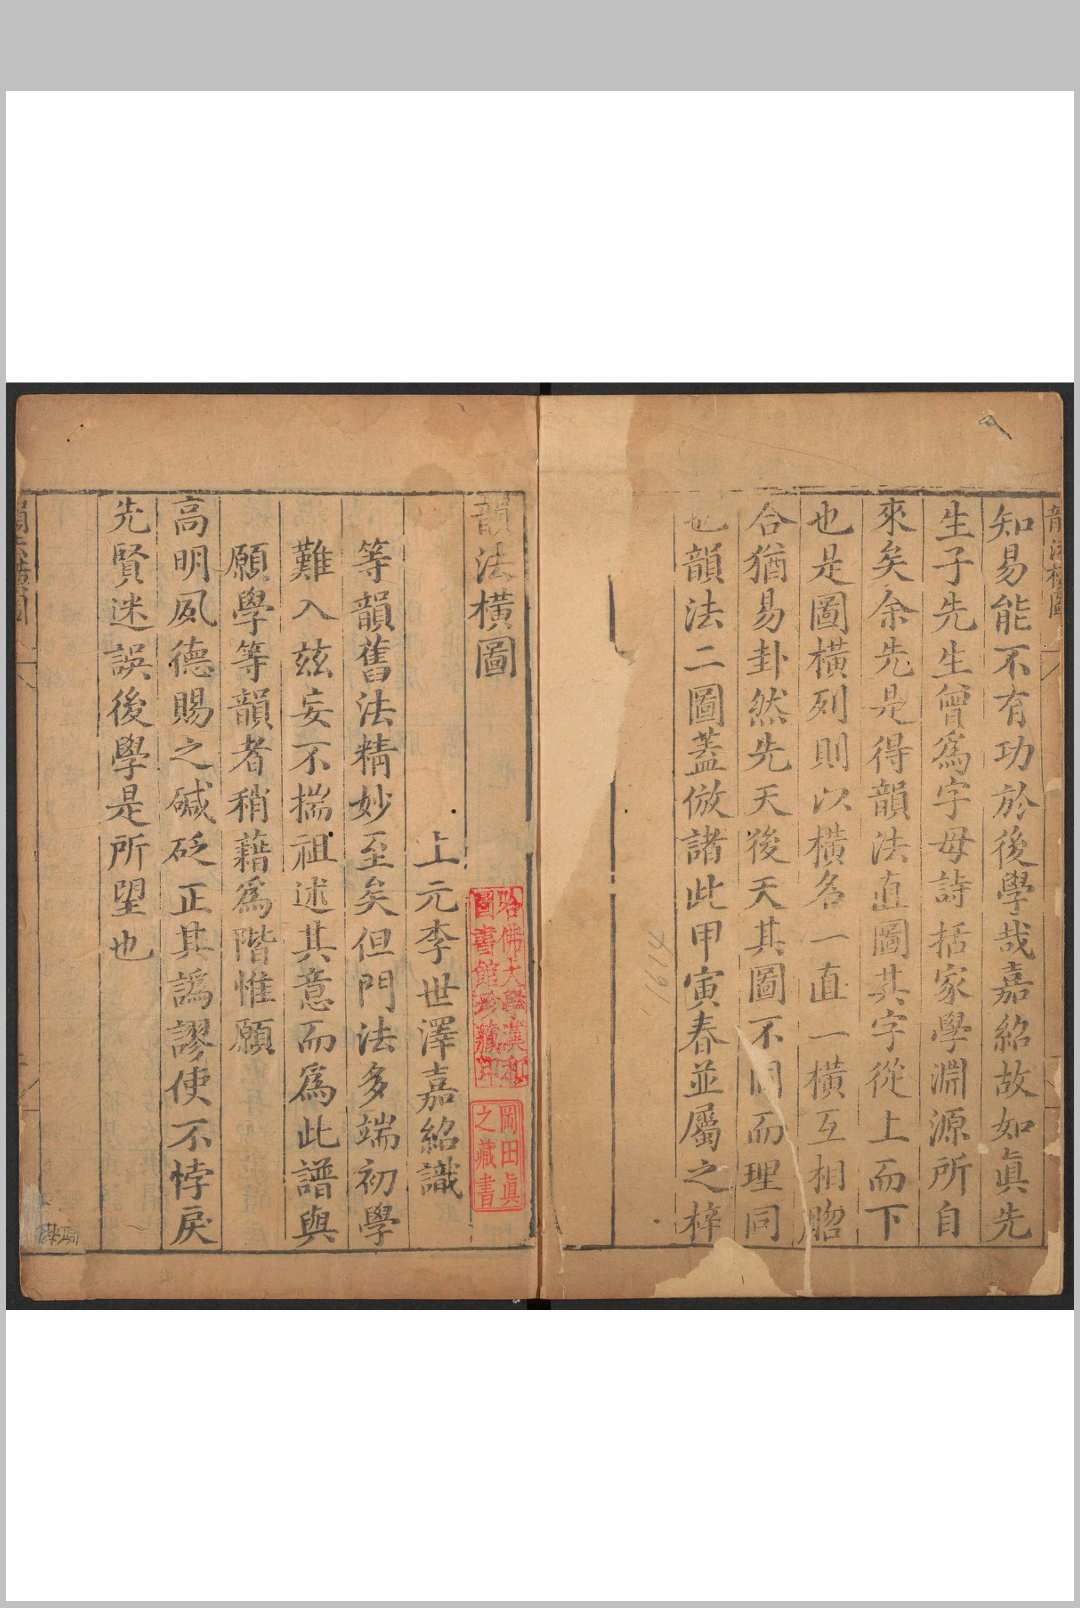 韻法橫圖
知易能不有功於後學哉嘉紹故如眞先
生子先生曾爲字母詩括家學淵源所自
來矣余先是得韻法直圖其字從上而下
也是圖橫列則以橫名一直一橫互相昭
合猶易卦然先天後天其圖不同而理同
也韻法二圖蓋倣諸此甲寅春並屬之梓
11974
韻法橫圖
哈佛大學漢和
圖書館珍藏印
岡田眞
之藏書
上元李世澤嘉紹識
等韻舊法精妙至矣但門法多端初學
難入茲妄不揣祖述其意而爲此譜與
願學等韻者稍藉爲階惟願
高明夙德賜之鍼砭正其譌謬使不悖戾
先賢迷誤後學是所望也